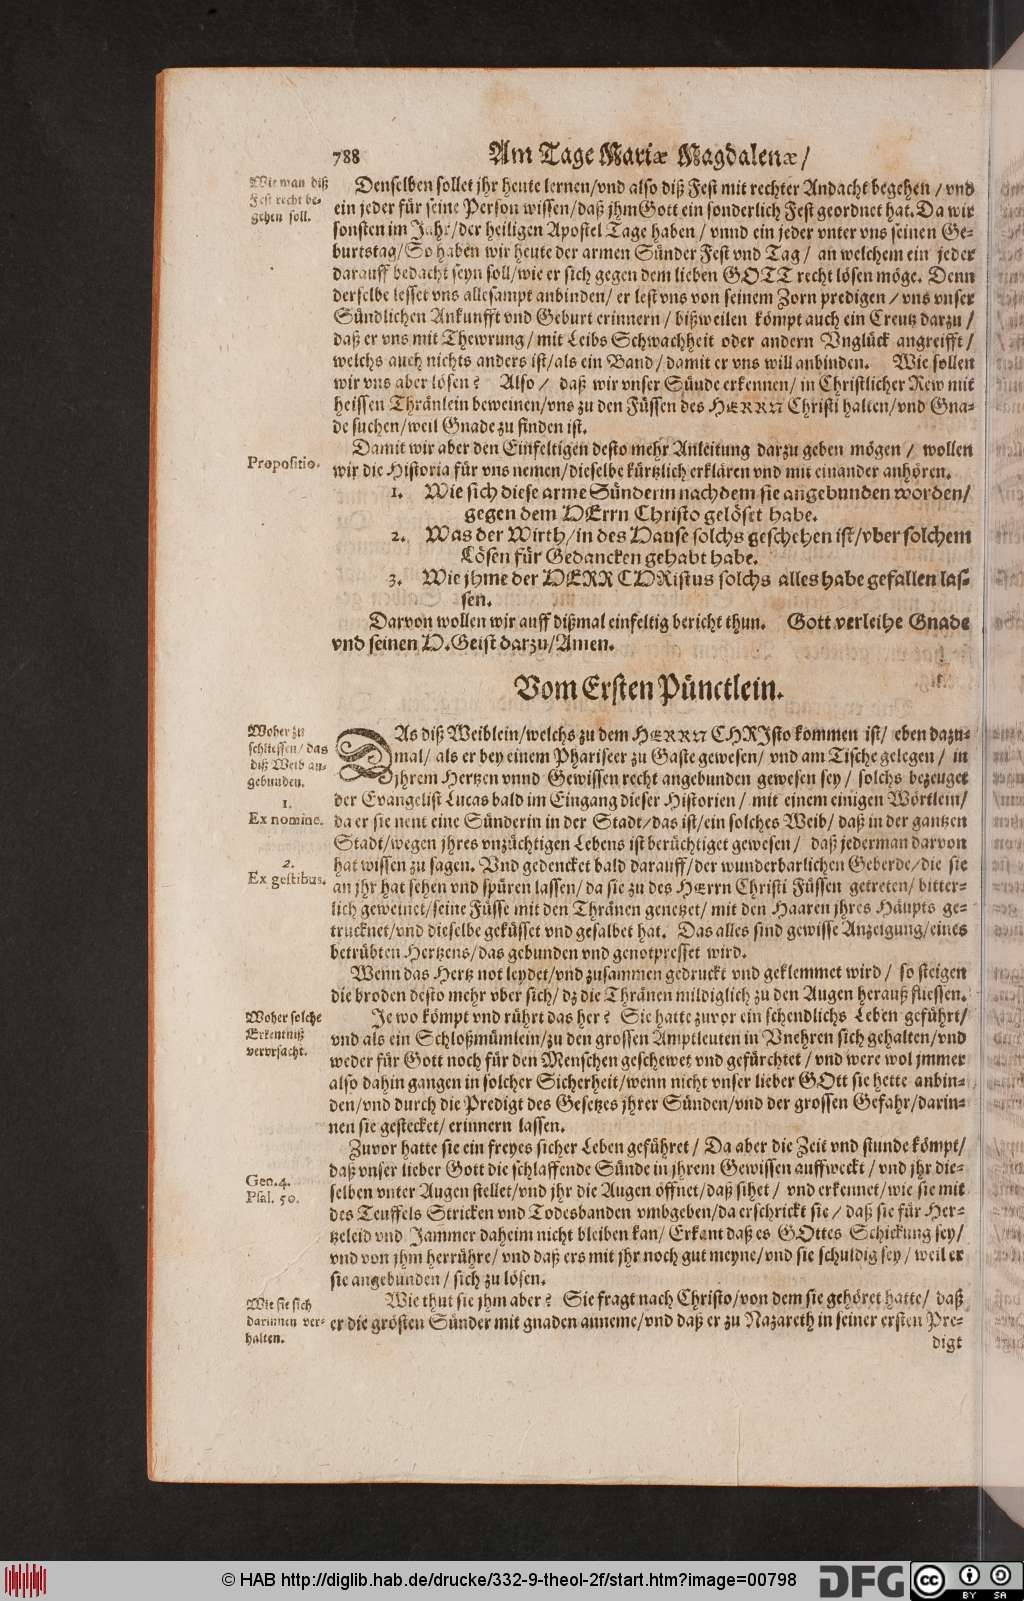 788 Am Tage Mariæ Magdalenæ/
Wie man diß
Fest recht be-
gehen soll.
Denselben sollet jhr heute lernen/vnd also diß Fest mit rechter Andacht begehen/ vnd
ein jeder für seine Person wissen/daß jhm Gott ein sonderlich Fest geordnet hat. Da wir
sonsten im Jahr/der heiligen Apostel Tage haben/ vnnd ein jeder vnter vns seinen Ge-
burtstag/So haben wir heute der armen Sünder Fest vnd Tag/ an welchem ein jeder
darauff bedacht seyn soll/wie er sich gegen dem lieben GOTT recht lösen möge. Denn
derselbe lesset vns allesampt anbinden/ er lest vns von seinem Zorn predigen/ vns vnser
Sündlichen Ankunfft vnd Geburt erinnern/ bißweilen kömpt auch ein Creutz darzu/
daß er vns mit Thewrung/mit Leibs Schwachheit oder andern Vnglück angreifft/
welchs auch nichts anders ist/als ein Band/damit er vns will anbinden. Wie sollen
wir vns aber lösen? Also/ daß wir vnser Sünde erkennen/ in Christlicher Rew mit
heissen Thränlein beweinen/vns zu den Füssen des HERRN Christi halten/vnd Gna-
de suchen/weil Gnade zu finden ist.
Propositio.
Damit wir aber den Einfeltigen desto mehr Anleitung darzu geben mögen/ wollen
wir die Historia für vns nemen/dieselbe kürtzlich erklären vnd mit einander anhören.
1. Wie sich diese arme Sünderin nachdem sie angebunden worden/
gegen dem HErrn Christo gelöset habe.
2. Was der Wirth/in des Hause solchs geschehen ist/vber solchem
Lösen für Gedancken gehabt habe.
3. Wie jhme der HERR CHRistus solchs alles habe gefallen las-
sen.
Darvon wollen wir auff dißmal einfeltig bericht thun. Gott verleihe Gnade
vnd seinen H.Geist darzu/Amen.
Vom Ersten Pünctlein.
Woher zu
schliessen/das
diß Weib an-
gebunden.
1.
Ex nomine.
2.
Ex gestibus.
DAs diß Weiblein/welchs zu dem HERRN CHRJsto kommen ist/ eben dazu-
mal/ als er bey einem Phariseer zu Gaste gewesen/ vnd am Tische gelegen/ in
jhrem Hertzen vnnd Gewissen recht angebunden gewesen sey/ solchs bezeuget
der Evangelist Lucas bald im Eingang dieser Historien/ mit einem einigen Wörtlein/
da er sie nent eine Sünderin in der Stadt/das ist/ein solches Weib/ daß in der gantzen
Stadt/wegen jhres vnzüchtigen Lebens ist berüchtiget gewesen/ daß jederman darvon
hat wissen zu sagen. Vnd gedencket bald darauff/der wunderbarlichen Geberde/die sie
an jhr hat sehen vnd spüren lassen/da sie zu des HErrn Christi Füssen getreten/ bitter-
lich geweinet/seine Füsse mit den Thränen genetzet/ mit den Haaren jhres Häupts ge-
trucknet/vnd dieselbe geküsset vnd gesalbet hat. Das alles sind gewisse Anzeigung/eines
betrübten Hertzens/das gebunden vnd genotpresset wird.
Wenn das Hertz not leydet/vnd zusammen gedruckt vnd geklemmet wird/ so steigen
die broden desto mehr vber sich/dz die Thränen mildiglich zu den Augen herauß fliessen.
Woher solche
Erkentniß
verorsacht.
Je wo kömpt vnd rührt das her? Sie hatte zuvor ein schendlichs Leben geführt/
vnd als ein Schloßmümlein/zu den grossen Amptleuten in Vnehren sich gehalten/vnd
weder für Gott noch für den Menschen geschewet vnd gefürchtet/ vnd were wol jmmer
also dahin gangen in solcher Sicherheit/wenn nicht vnser lieber GOtt sie hette anbin-
den/vnd durch die Predigt des Gesetzes jhrer Sünden/vnd der grossen Gefahr/darin-
nen sie gestecket/ erinnern lassen.
Gen. 4.
Psal. 50.
Zuvor hatte sie ein freyes sicher Leben geführet/ Da aber die Zeit vnd stunde kömpt/
daß vnser lieber Gott die schlaffende Sünde in jhrem Gewissen auffweckt/ vnd jhr die-
selben vnter Augen stellet/vnd jhr die Augen öffnet/daß sihet/ vnd erkennet/wie sie mit
des Teuffels Stricken vnd Todesbanden vmbgeben/da erschrickt sie/ daß sie für Her-
tzeleid vnd Jammer daheim nicht bleiben kan/ Erkant daß es GOttes Schickung sey/
vnd von jhm herrühre/ vnd daß ers mit jhr noch gut meyne/vnd sie schuldig sey/ weil er
sie angebunden/ sich zu lösen.
Wie sie sich
darinnen ver-
halten.
Wie thut sie jhm aber? Sie fragt nach Christo/von dem sie gehöret hatte/ daß
er die grösten Sünder mit gnaden anneme/vnd daß er zu Nazareth in seiner ersten Pre-
digt
© HAB http://diglib.hab.de/drucke/332-9-theol-2f/start.htm?image=00798
DFG
cc BY SA